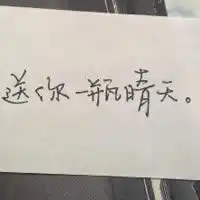 送你一瓶晴天。